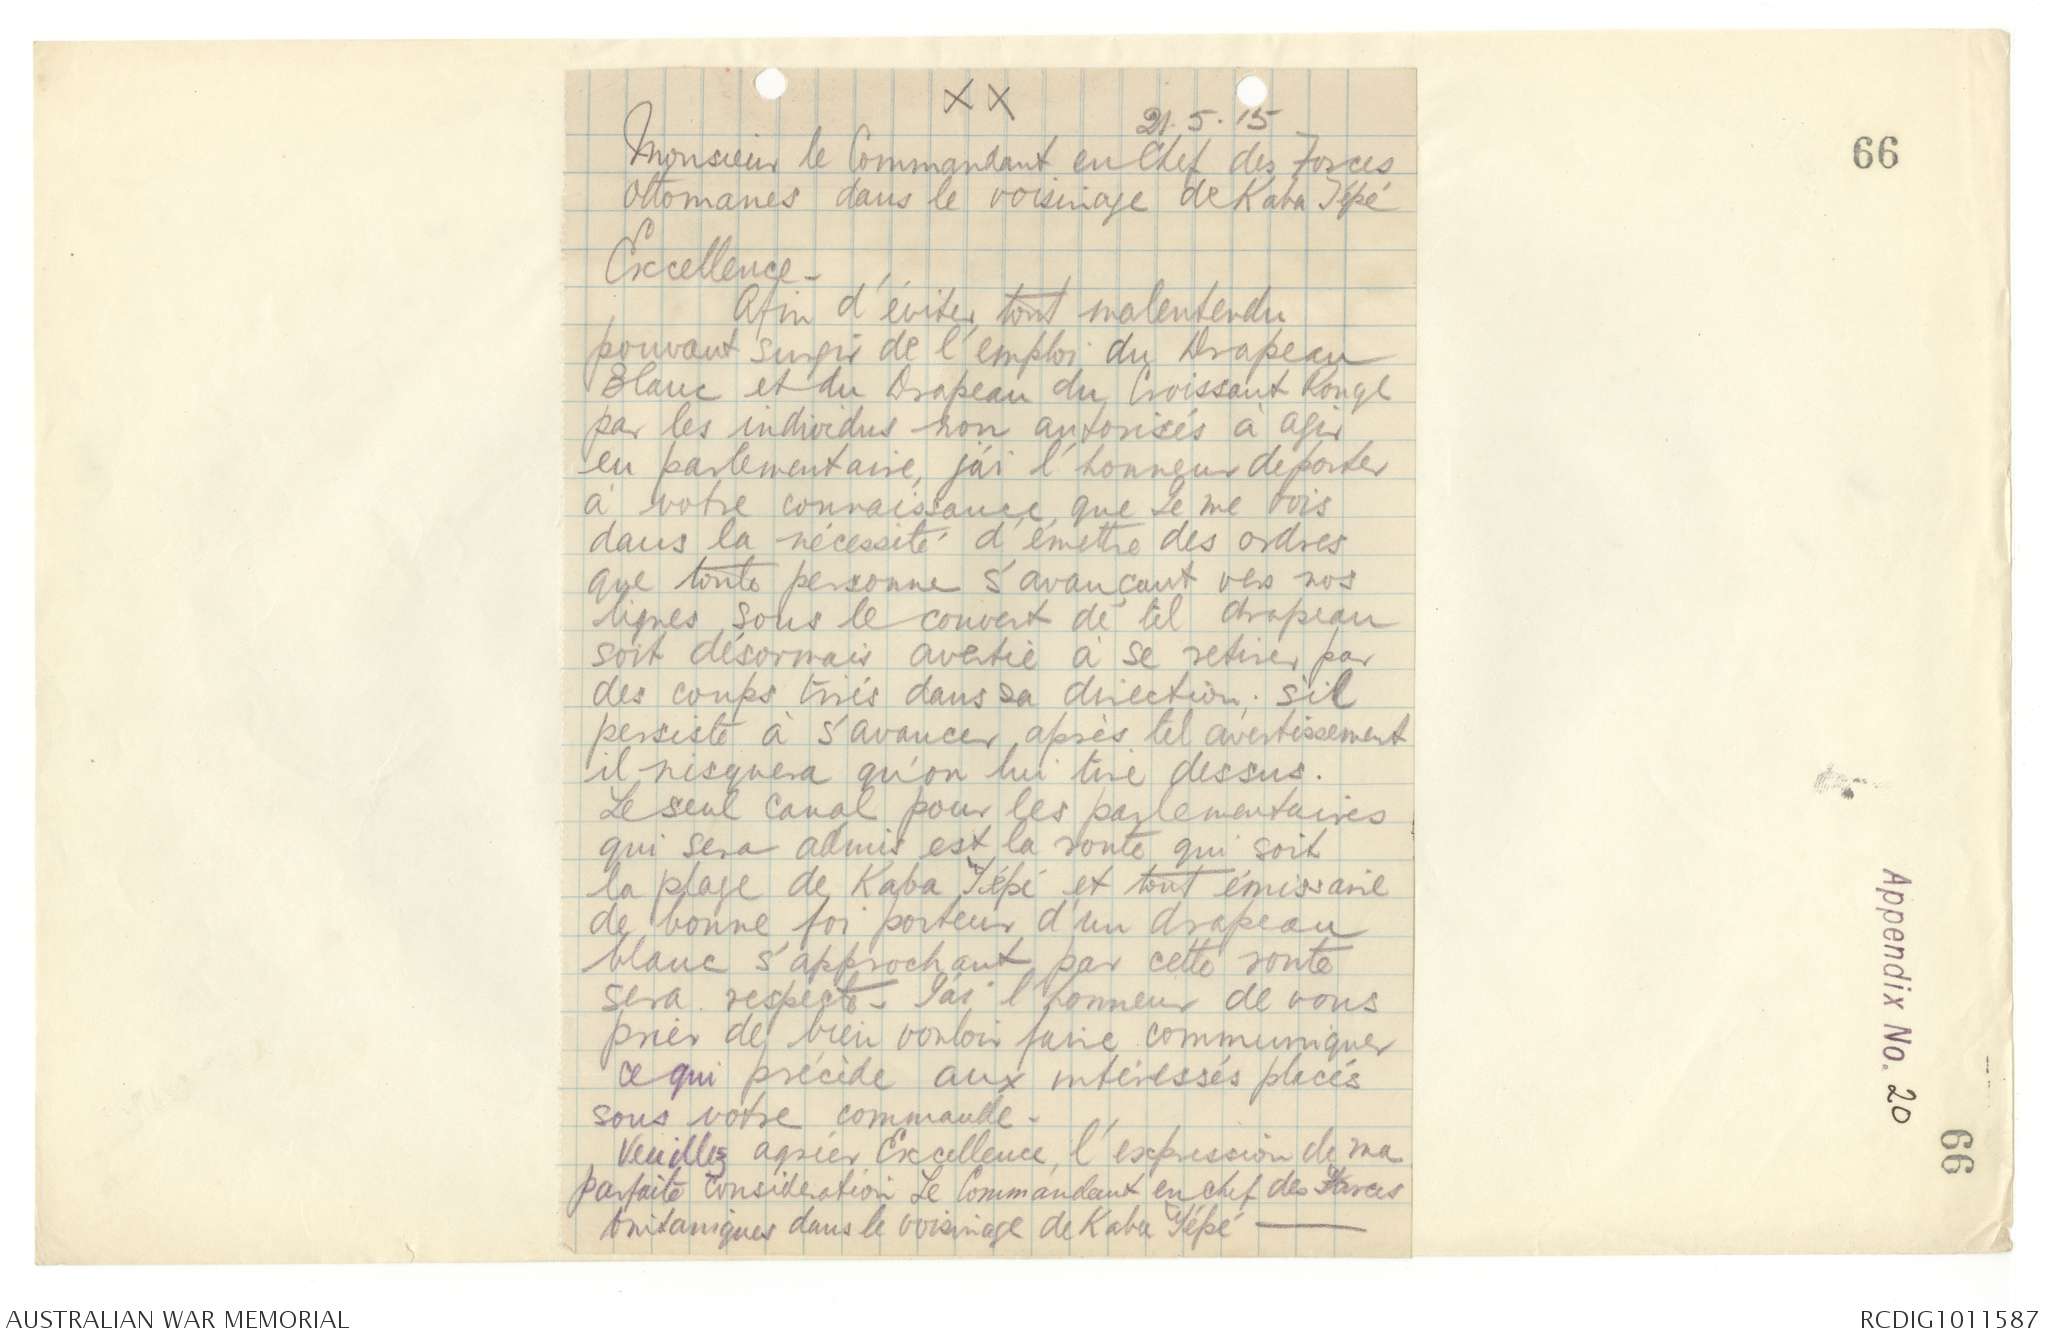 XX
21.5.15
Monsieur le Commandant en Chef des Forces
Ottomanes dans le voisinage de Kaba Tépé
Excellence -
Afin d'éviter tout malentendu
pouvant surgir de l'emploi du Drapeau
Blanc et du Drapeau du Croissant Rouge
par les individus non autorisés à agir
en parlementaire, j'ai l'honneur de porter
à votre connaissance que Je me vois
dans la nécessité d'émettre des ordres
que toute personne s'avançant vers nos
lignes sous le couvert de tel drapeau
soit désormais avertie à se retirer par
des coups tirés dans sa direction. s'il
persiste à s'avancer après tel avertissement
il risquera qu'on lui tire dessus.
Le seul canal pour les parlementaires
qui sera admis est la route qui soit
la plage de Kaba Tépé et tout émissarie
de bonne foi porteur d'un drapeau
blanc s'approchant par cette route
sera respecté - J'ai l'honneur de vous
prier de bien vouloir faire communiquer
ce qui précède aux intéressés placés
sous votre commande -
Veuillez agréer Excellence, l'expression de ma
parfaite considération Le Commandant en chef des Forces
britaniques dans le voisinage de Kaba Tépé
66
Appendix No. 20
66
AUSTRALIAN WAR MEMORIAL
RCDIG1011587